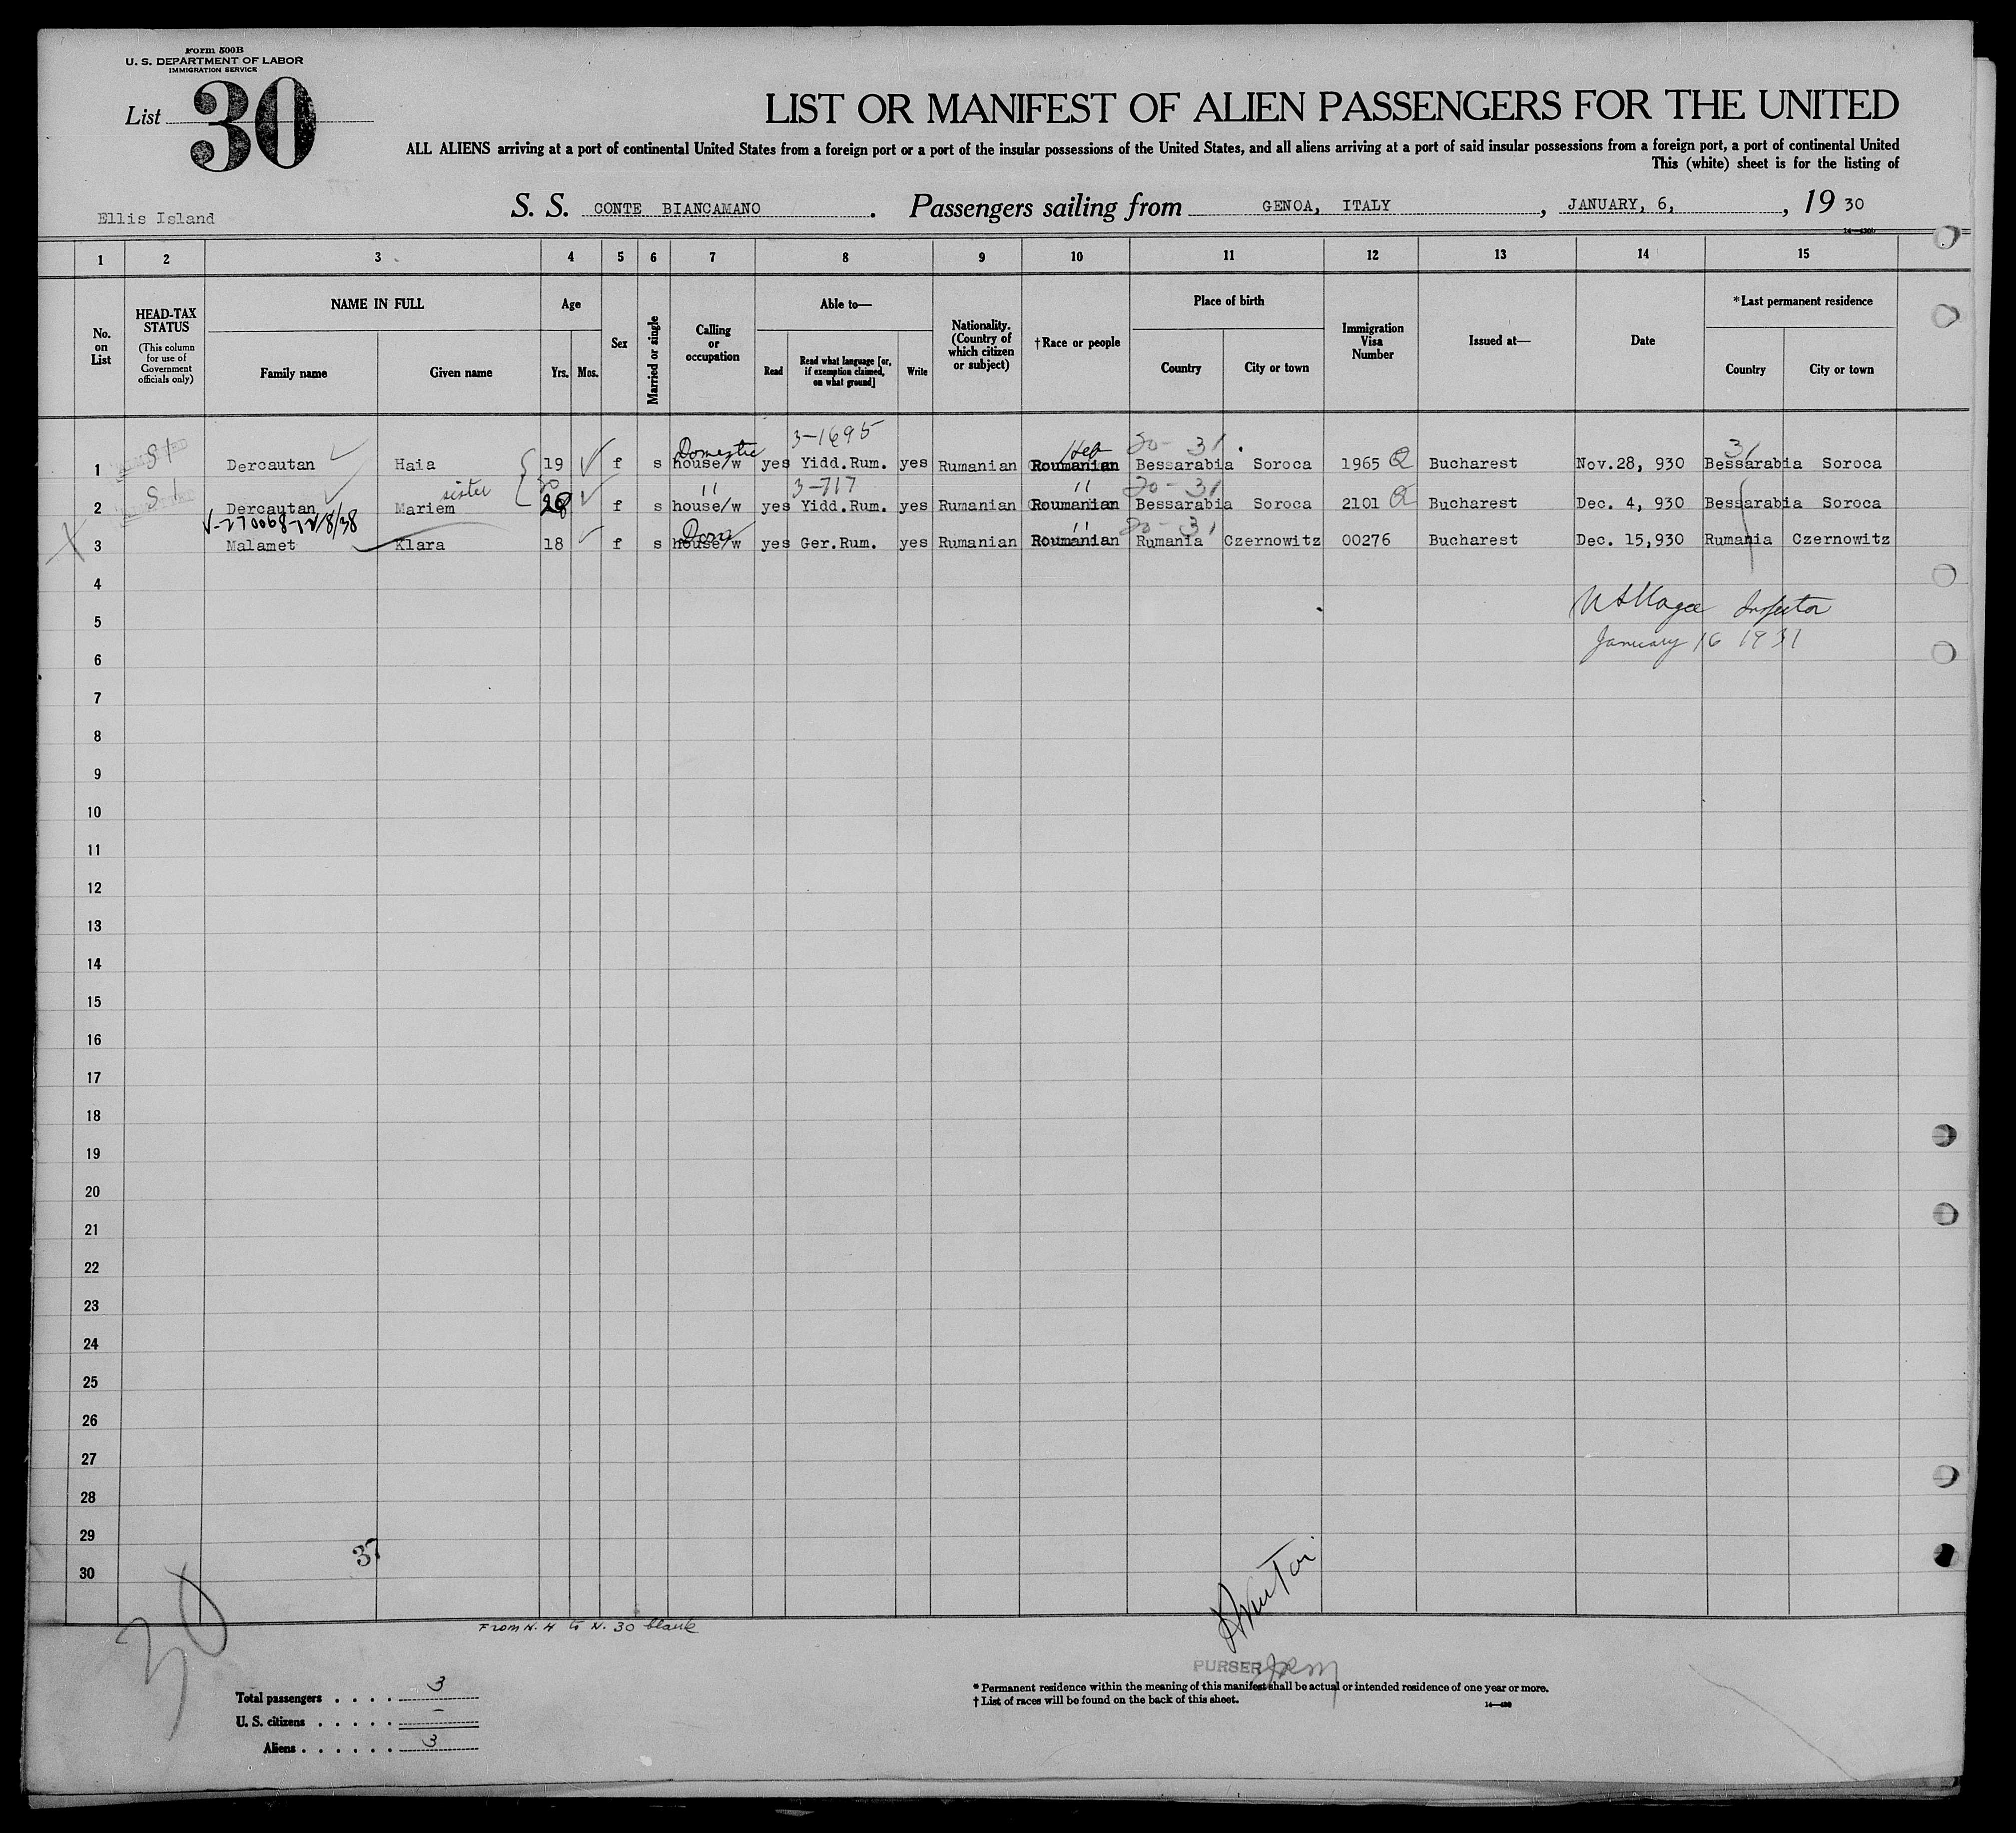 Form 500B
U. S. DEPARTMENT OF LABOR
IMMIGRATION SERVICE
List 30
LIST OR MANIFEST OF ALIEN PASSENGERS FOR THE UNITED
ALL ALIENS arriving at a port of continental United States from a foreign port or a port of the insular possessions of the United States, and all aliens arriving at a port of said insular possessions from a foreign port, a port of continental United
This (white) sheet is for the listing of
Ellis Island
S. S. CONTE BIANCAMANO . Passengers sailing from GENOA, ITALY , JANUARY, 6, , 19 30
1 2 3 4 5 6 7 8 9 10 11 12 13 14 15
No. on List
HEAD-TAX STATUS
(This column for use of Government officials only)
NAME IN FULL
Family name
Given name
Age
Yrs. Mos.
Sex
Married or single
Calling or occupation
Able to—
Read
Read what language [or, if exemption claimed, on what ground]
Write
Nationality. (Country of which citizen or subject)
†Race or people
Place of birth
Country
City or town
Immigration Visa Number
Issued at—
Date
*Last permanent residence
Country
City or town
Domestic 3-1695 Heb 20- 31 31
1 Dercautan Haia 19 f s house/w yes Yidd.Rum. yes Rumanian Roumanian Bessarabia Soroca 1965 Q Bucharest Nov.28, 930 Bessarabia Soroca
sister 20 " 3-717 " 20- 31
2 Dercautan Mariem 28 f s house/w yes Yidd.Rum. yes Rumanian Roumanian Bessarabia Soroca 2101 Q Bucharest Dec. 4, 930 Bessarabia Soroca
V-270068-12/8/38 " 20- 31
3 Malamet Klara 18 f s house/w yes Ger.Rum. yes Rumanian Roumanian Rumania Czernowitz 00276 Bucharest Dec. 15,930 Rumania Czernowitz
4
Inspector
5
January 16 1931
6
7
8
9
10
11
12
13
14
15
16
17
18
19
20
21
22
23
24
25
26
27
28
29
37
30
30
From N. 4 to N. 30 blank
PURSER
Total passengers . . . . 3
U. S. citizens . . . . . —
Aliens . . . . . . 3
* Permanent residence within the meaning of this manifest shall be actual or intended residence of one year or more.
† List of races will be found on the back of this sheet.